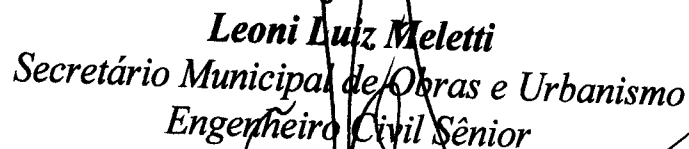 Leoni Luiz Meletti
Secretário Municipal de Obras e Urbanismo
Engenheiro Civil Sênior